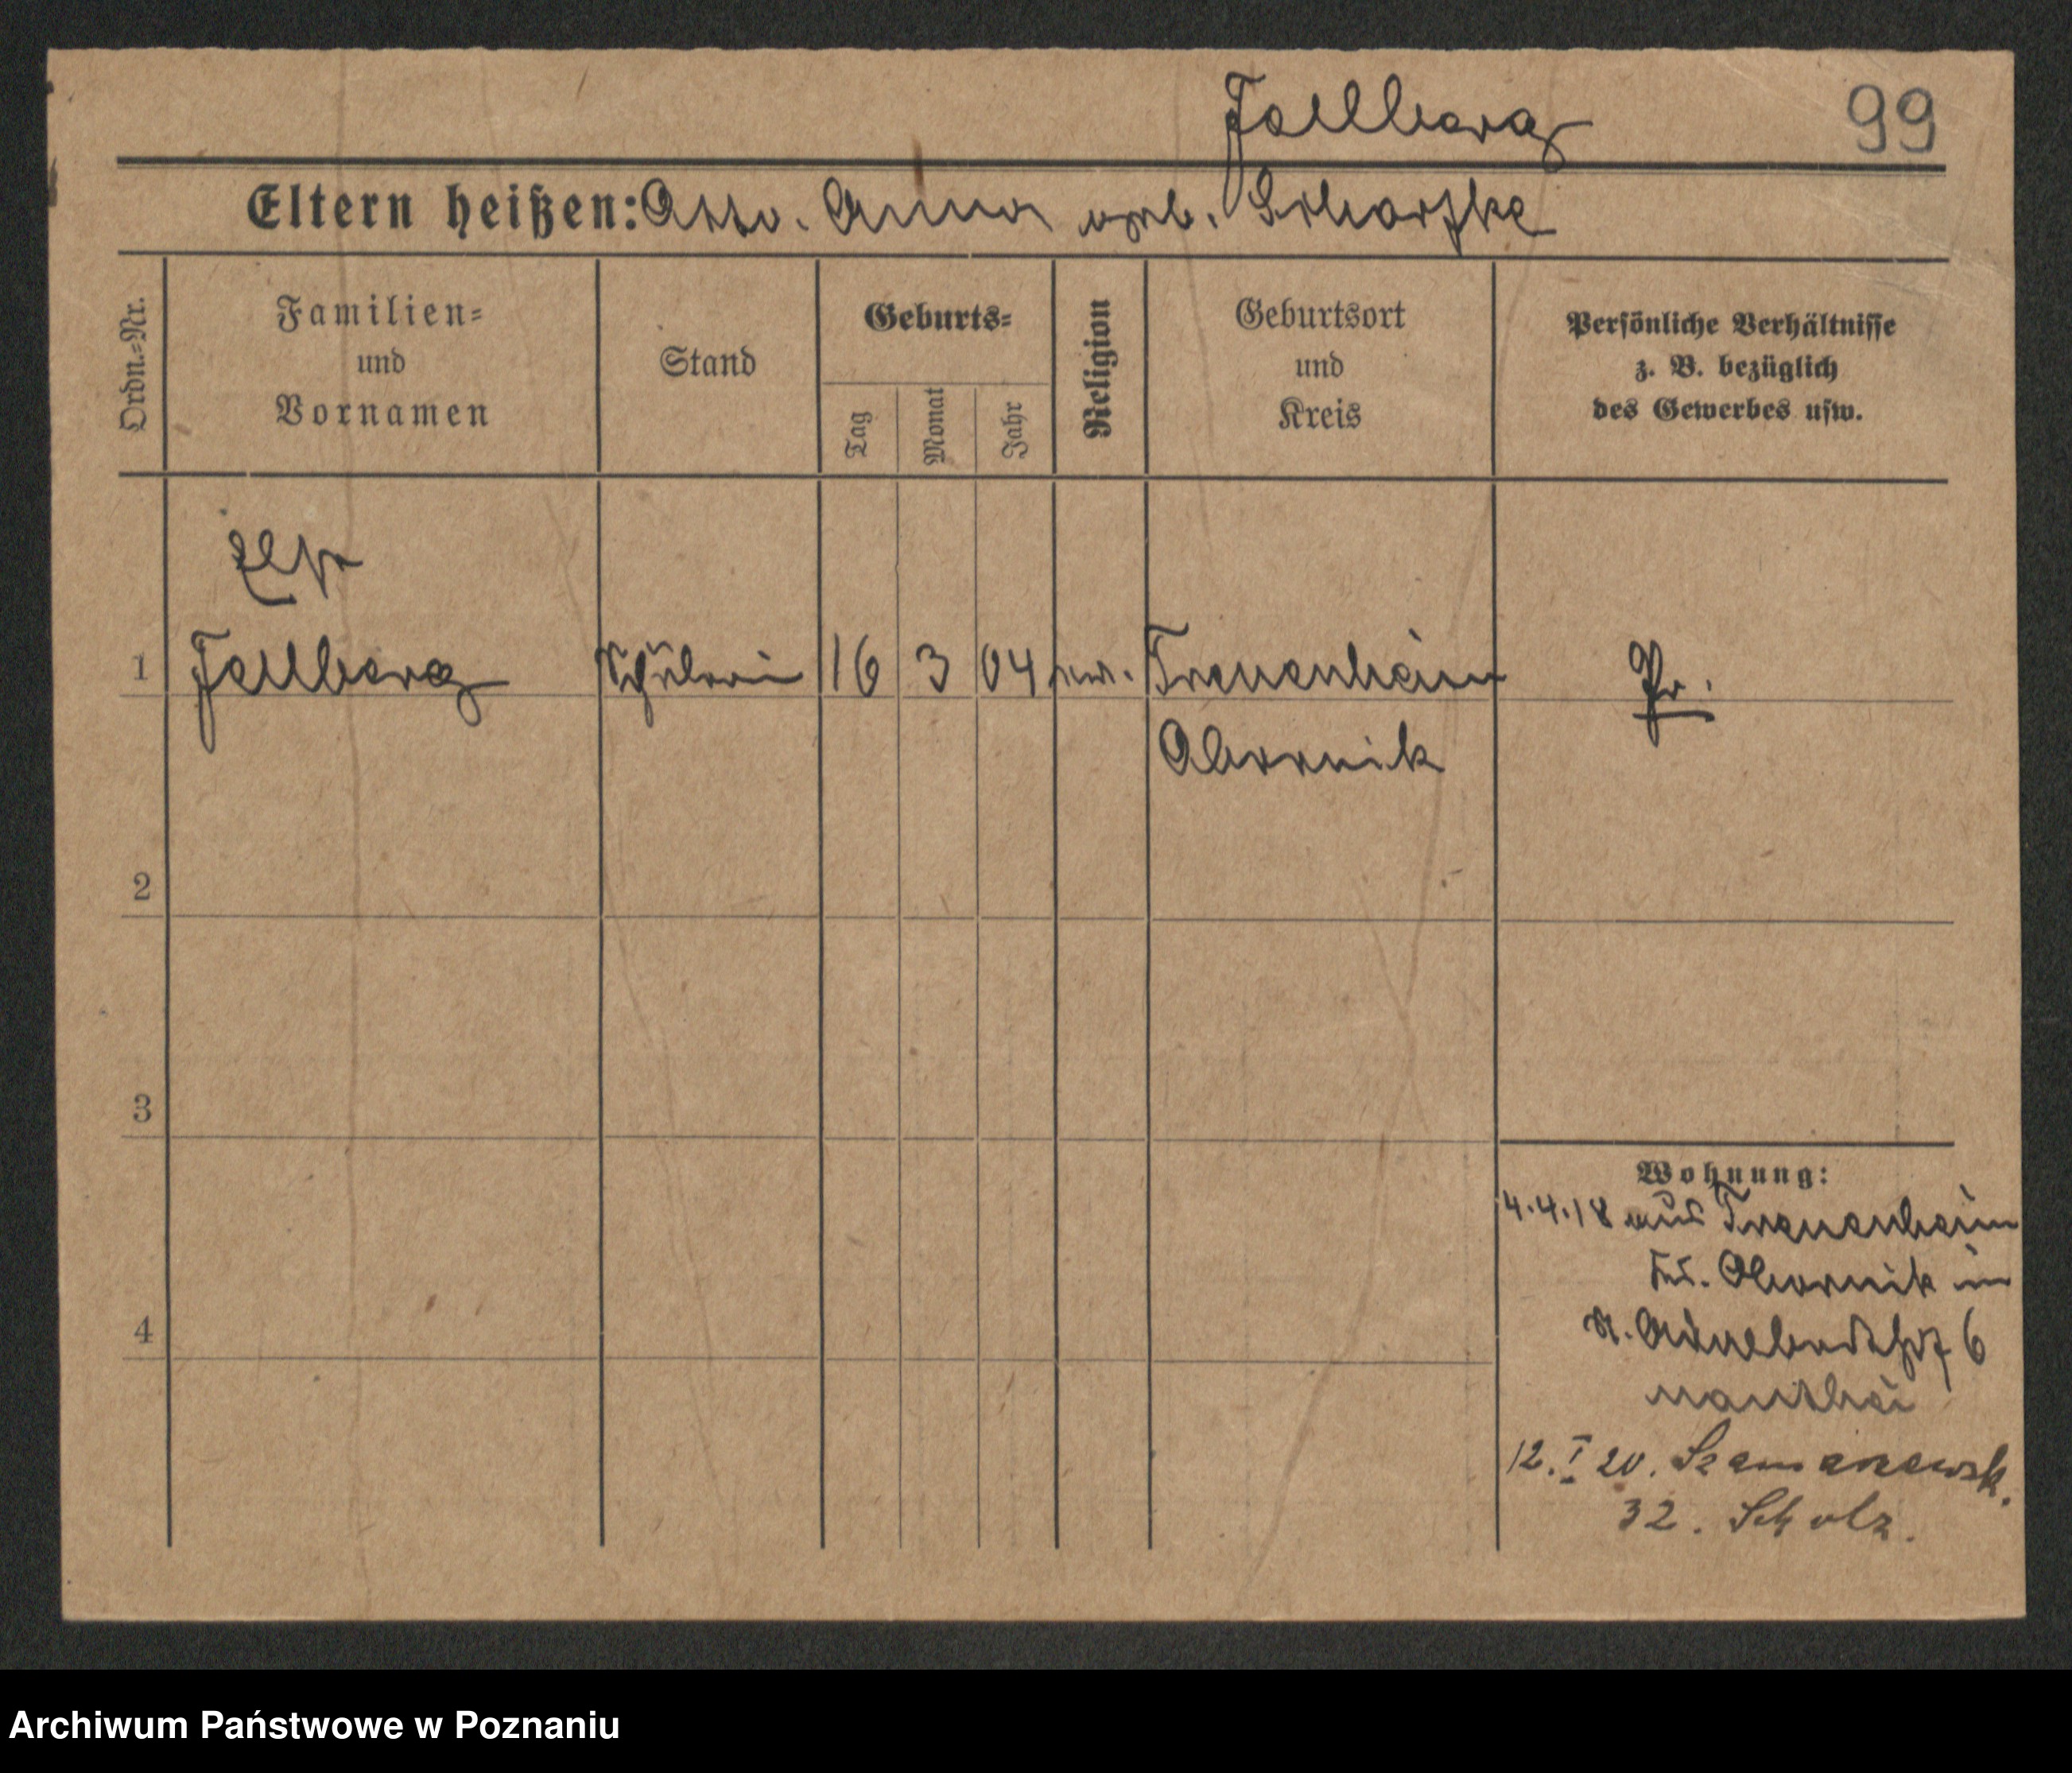 Fellberg 99
Eltern heißen: Otto. Anna geb. Scharfke
Ordn.=Nr.
Familien=
und
Vornamen
Stand
Geburts=
Tag
Monat
Jahr
Religion
Geburtsort
und
Kreis
Persönliche Verhältnisse
z. B. bezüglich
des Gewerbes usw.
Else
1 Fellberg Schülerin 16 3 04 ev. Treuenheim Pr.
Obornik
2
3
4
Wohnung:
4.4.18 aus Treuenheim
Obornik in
6
Manthei
12. I 20. Szamarzewsk.
32. Scholz.
Archiwum Państwowe w Poznaniu